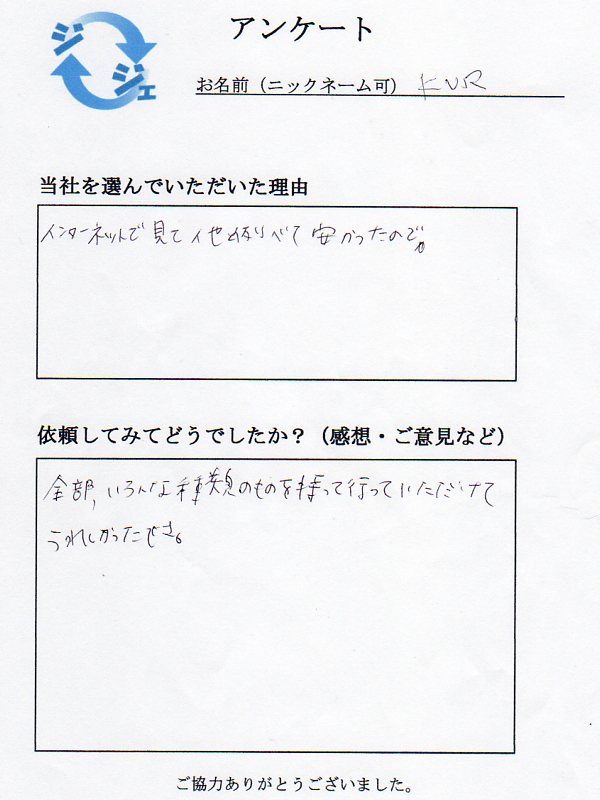 ジジェ
アンケート
お名前（ニックネーム可） KUR
当社を選んでいただいた理由
インターネットで見て 他 比べて 安かったので。
依頼してみてどうでしたか？（感想・ご意見など）
全部、いろんな種類のものを持って行っていただけて
うれしかったです。
ご協力ありがとうございました。